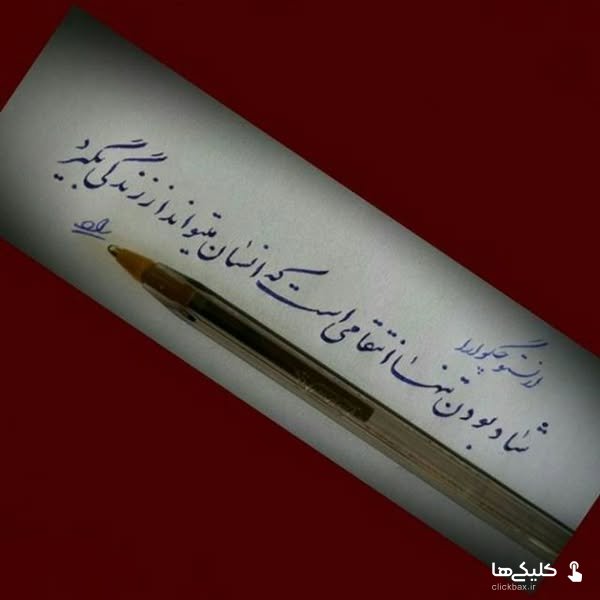 ارنستو چگوارا
شاد بودن تنها انتقامی است که انسان میتواند از زندگی بگیرد
کلیکی‌ها
clickbax.ir